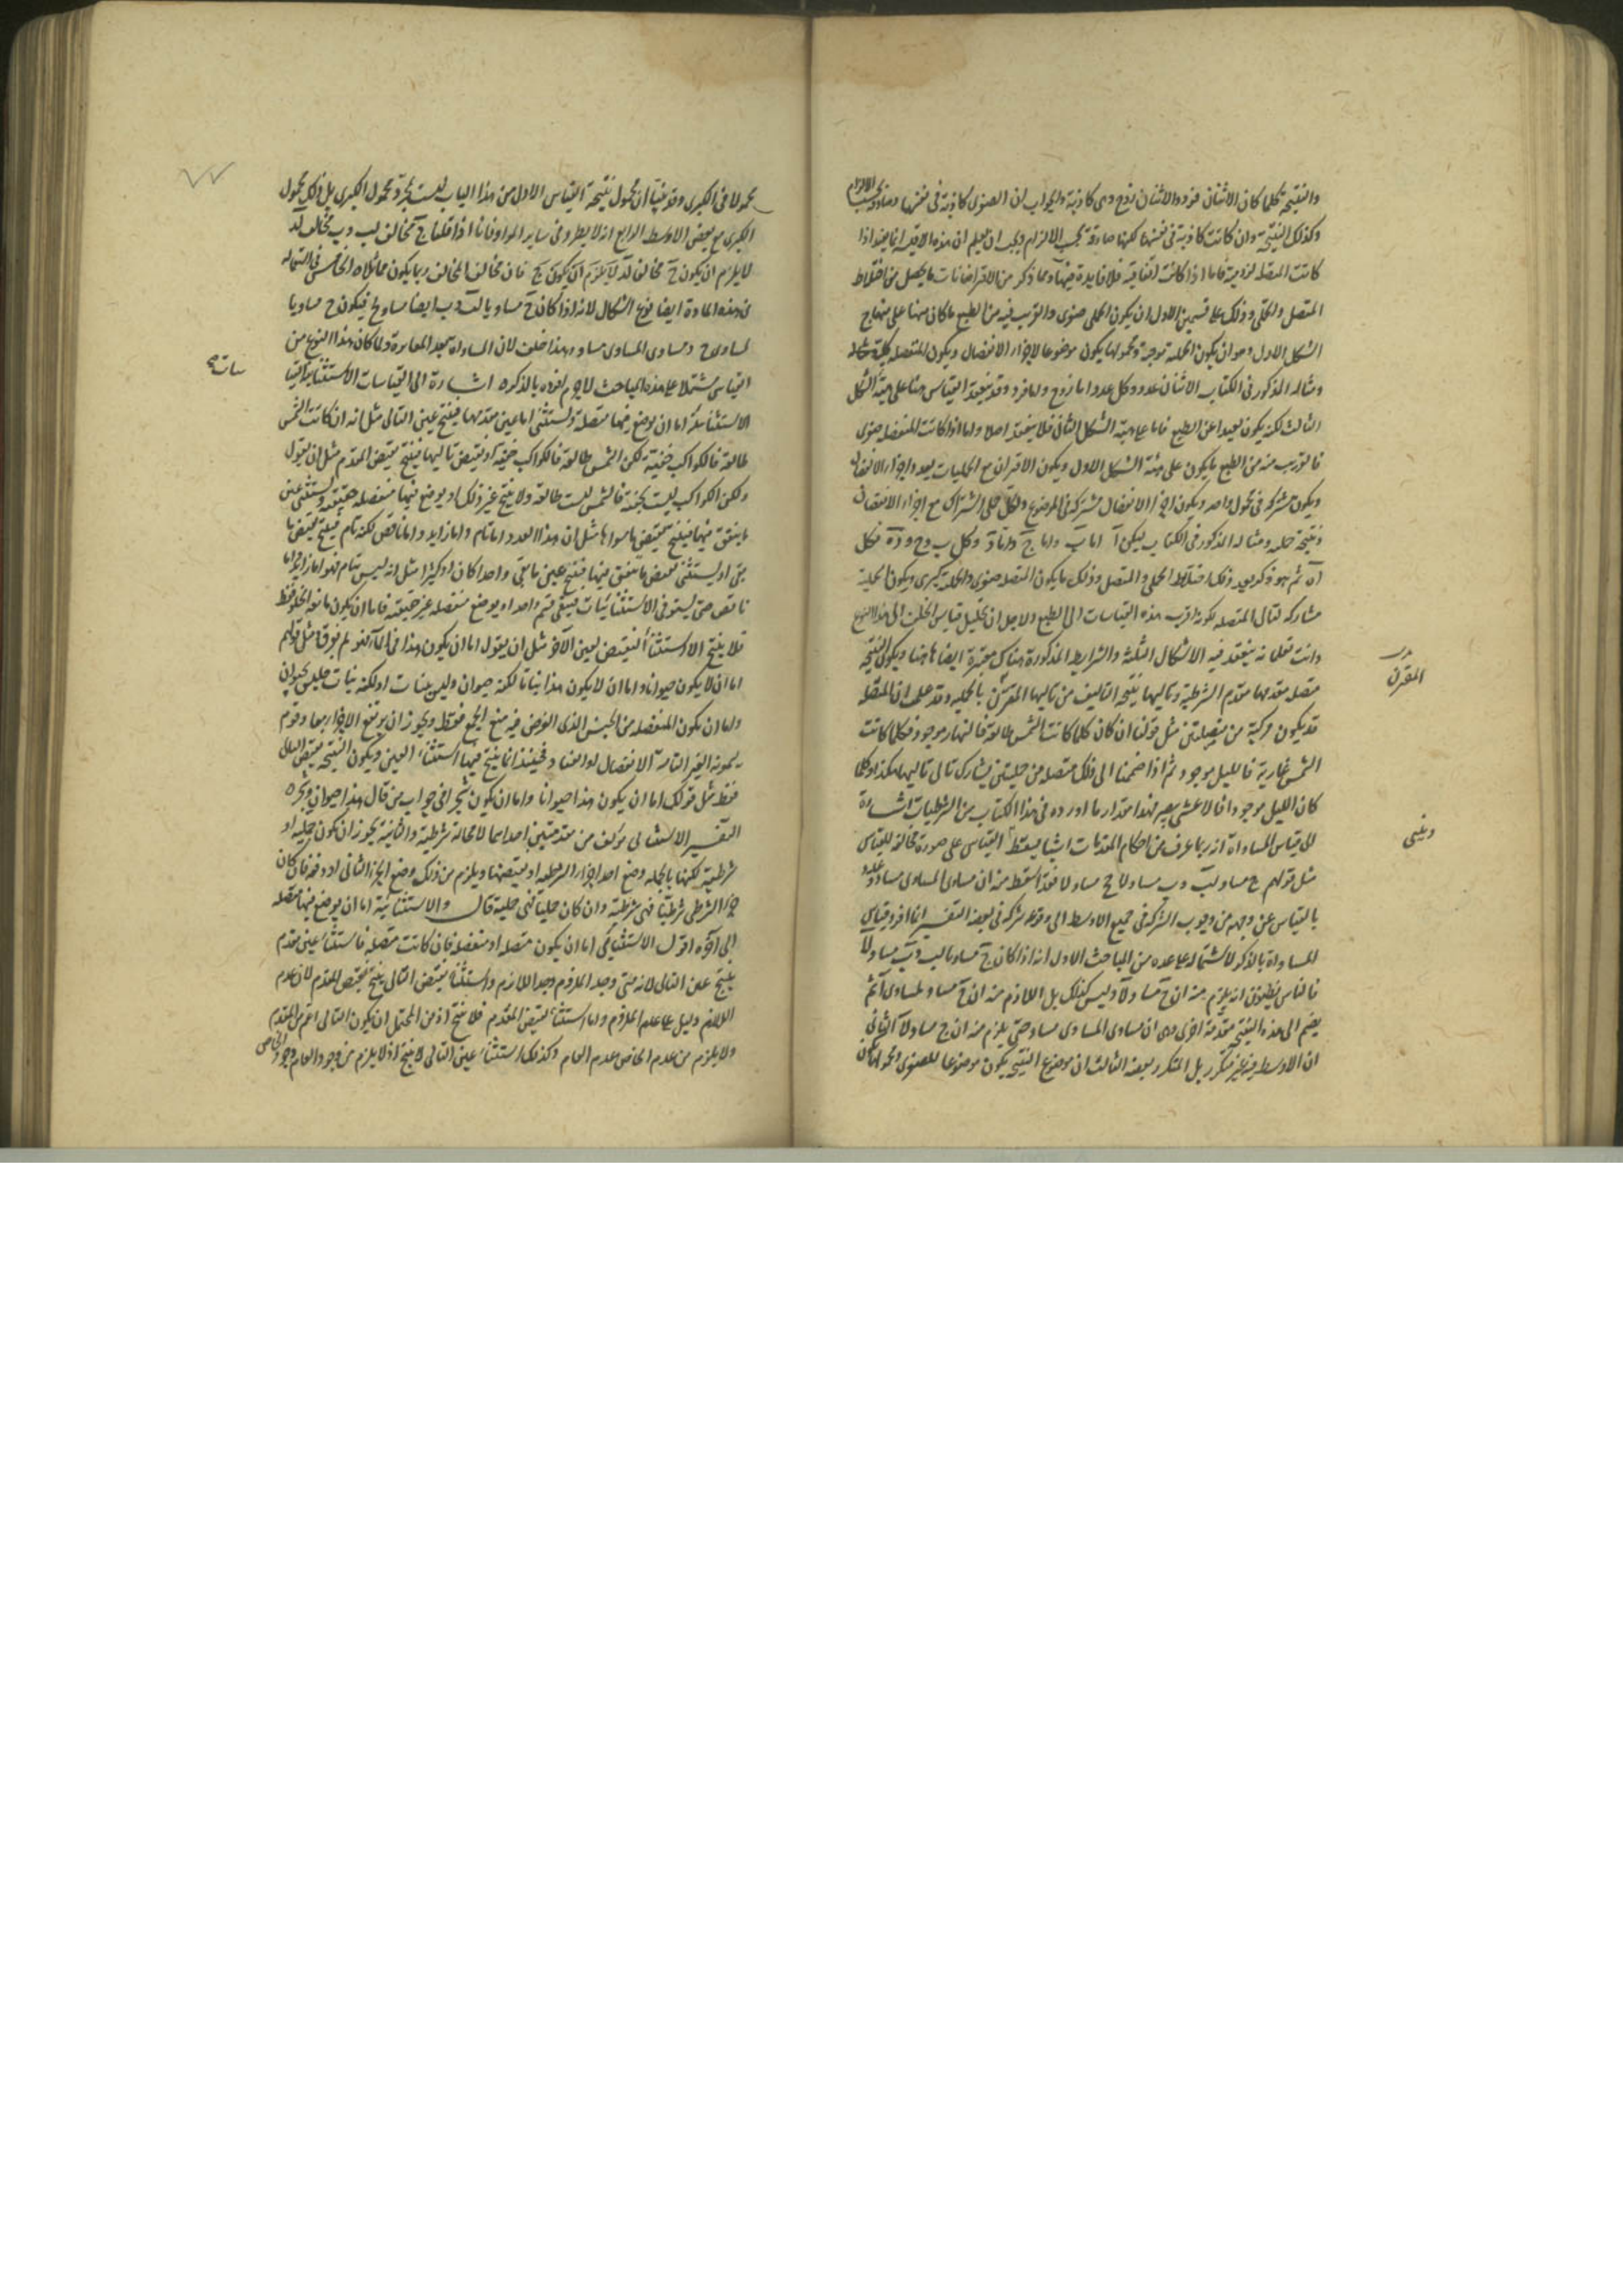 والنتيجة كلما كان الاثنان فردا والاثنان زوج وهى كاذبة والجواب ان الصغرى كاذبة فى نفسها صادقة بحسب الالزام
وكذلك النتيجة وان كانت كاذبة فى نفسها لكنها صادقة بحسب الالزام ويجب ان يعلم ان هذه الاقيسة انما يفيد اذا
كانت المتصلة لزومية فاما اذا كانت اتفاقية فلا فايدة فيها ومما ذكر من الاقترانات ما يحصل من اختلاط
المتصل والحملى وذلك على قسمين الاول ان يكون الحملى صغرى والقريب فيه من الطبع ما كان منها على منهاج
الشكل الاول وهو ان يكون الحملية موجبة ومحمولها يكون موضوعا لاجزاء الانفصال ويكون المنفصلة كلية
ومثاله المذكور فى الكتاب الاثنان عدد وكل عدد اما زوج واما فرد وقد ينعقد القياس منها على هيئة الشكل
الثالث لكنه يكون بعيدا عن الطبع فاما على هيئة الشكل الثانى فلا ينعقد اصلا واما اذا كانت المنفصلة صغرى
فالقريب منه من الطبع ما يكون على هيئة الشكل الاول ويكون الاقتران مع الحمليات بعدد اجزاء الانفصال
ويكون مشتركة فى محمول واحد ويكون اجزاء الانفصال مشتركة فى الموضوع ولكل حملى اشتراك مع اجزاء الانفصال
ونتيجته حملية ومثاله المذكور فى الكتاب ليكن آ اما ب واما ج واما د وكل ب و ج و د ه فكل
آ ه ثم هو ذكر بعد ذلك اختلاط الحملى والمتصل وذلك ما يكون المتصلة صغرى والحملية كبرى ويكون الحملية
مشاركة لتالى المتصلة لكونه اقرب هذه القياسات الى الطبع ولاجل ان تحليل قياس الخلف الى هذا النوع
وانت تعلم انه ينعقد فيه الاشكال الثلثة والشرايط المذكورة هناك معتبرة ايضا هاهنا ويكون النتيجة
متصلة مقدمها مقدم الشرطية وتاليها نتيجة التاليف من تاليها المقترن بالحملية وقد علمت ان المتصلة
قد يكون مركبة من متصلتين مثل قولنا ان كان كلما كانت الشمس طالعة فالنهار موجود فكلما كانت
الشمس غاربة فالليل موجود ثم اذا ضممنا الى ذلك متصلة من حمليتين يشارك تالى تاليها هكذا وكلما
كان الليل موجودا فالاعشى يبصر فهذا مقدار ما اورده فى هذا الكتاب من الشرطيات اشارة
الى قياس المساواة انه ربما عرف من احكام المقدمات اشيا يسقط القياس على صورة مخالفة للقياس
مثل قولهم ج مساو لب وب مساو لا فج مساو لا فقد اسقط منه ان مساوى المساوى مساو وعدل
بالقياس عن وجهه من وجوب الشركة فى جميع الاوسط الى وقوع شركة فى بعضه التفسير انما افرد قياس
المساواة بالذكر لاشتماله على عده من المباحث الاول انه اذا كان ج مساويا لب وب مساو لا
فالناس يظنون انه يلزم منه ان ج مساو لا وليس كذلك بل اللازم منه ان ج مساو لمساوى آ ثم
يضم الى هذه النتيجة مقدمة اخرى وهى ان مساوى المساوى مساو حتى يلزم منه ان ج مساو لا الثانى
ان الاوسط فيه غير متكرر بل المتكرر بعضه الثالث ان موضوع النتيجة يكون موضوعا للصغرى ومحمولها يكون
المقترن
وينبنى
محمولا فى الكبرى وقد بينا ان محمول نتيجة القياس الاول من هذا الباب ليست بجزء محمول الكبرى بل ذلك محمول
الكبرى مع بعض الاوسط الرابع انه لا يطرد فى ساير المواد فانا اذا قلنا ج مخالف لب وب مخالف لد
لا يلزم ان يكون ج مخالف لد فان مخالف المخالف ربما يكون مماثلا الخامس فى استعماله
فى هذه المادة ايضا نوع اشكال لانه اذا كان ج مساويا لب وب ايضا مساو لج فيكون ج مساويا
لمساوى ج ومساوى المساوى مساو وهذا خلف لان المساواة بعد المغايرة ولما كان هذا النوع من
القياس مشتملا على هذه المباحث لا جرم افرده بالذكر اشارة الى القياسات الاستثنائية القياسات
الاستثنائية اما ان يوضع فيها متصلة ويستثنى اما عين مقدمها فينتج عين التالى مثل انه ان كانت الشمس
طالعة فالكواكب خفية لكن الشمس طالعة فالكواكب خفية او نقيض تاليها فينتج نقيض المقدم مثل ان يقول
ولكن الكواكب ليست بخفية فالشمس ليست طالعة ولا ينتج غير ذلك او يوضع فيها منفصلة حقيقية ويستثنى عين
ما يتفق منها فينتج نقيض ما سواها مثل ان هذا العدد اما تام واما زايد واما ناقص لكنه تام فينتج نقيض ما
بقى او يستثنى نقيض ما يتفق منها فينتج عين ما بقى واحدا كان او كثيرا مثل انه ليس بتام فهو اما زايد واما
ناقص حتى يستوفى الاستثنائيات فيبقى قسم واحد او يوضع منفصلة غير حقيقية فاما ان يكون مانعة الخلو فقط
فلا ينتج الا استثنا النقيض لعين الاخر مثل ان يقول اما ان يكون هذا فى الما واما ان لم يغرق مثل قولهم
اما ان لا يكون حيوانا واما ان لا يكون هذا نباتا لكنه حيوان وليس بنبات او لكنه نبات فليس بحيوان
واما ان يكون المنفصلة من الجنس الذى الغرض فيه منع الجمع فقط ويجوز ان يرتفع الاجزاء معا وقوم
يسمونه الغير التامة الانفصال او العناد فحينئذ انما ينتج فيها استثناء العين ويكون النتيجة نقيض التالى
فقط مثل قولك اما ان يكون هذا حيوانا واما ان يكون شجرا فى جواب من قال هذا حيوان وشجر
التفسير الاستثنائى مؤلف من مقدمتين احداهما لا محالة شرطية والثانية يجوز ان يكون حملية او
شرطية لكنها بالجملة وضع احد اجزاء الشرطية او نقيضها ويلزم من ذلك وضع الجزء الثانى او رفعه فان كان
جزء الشرطى شرطيا فهى شرطية وان كان حمليا فهى حملية قال والاستثنائية اما ان يوضع فيها متصلة
الى اخره اقول الاستثنائى اما ان يكون متصلة او منفصلة فان كانت متصلة فاستثناء عين مقدم
ينتج عين التالى لانه متى وجد الملزوم وجد اللازم واستثناء نقيض التالى ينتج نقيض المقدم لان عدم
اللازم دليل على عدم الملزوم واما استثناء نقيض المقدم فلا ينتج اذ من المحتمل ان يكون التالى اعم من المقدم
ولا يلزم من عدم الخاص عدم العام وكذلك استثناء عين التالى لا ينتج اذ لا يلزم من وجود العام وجود الخاص